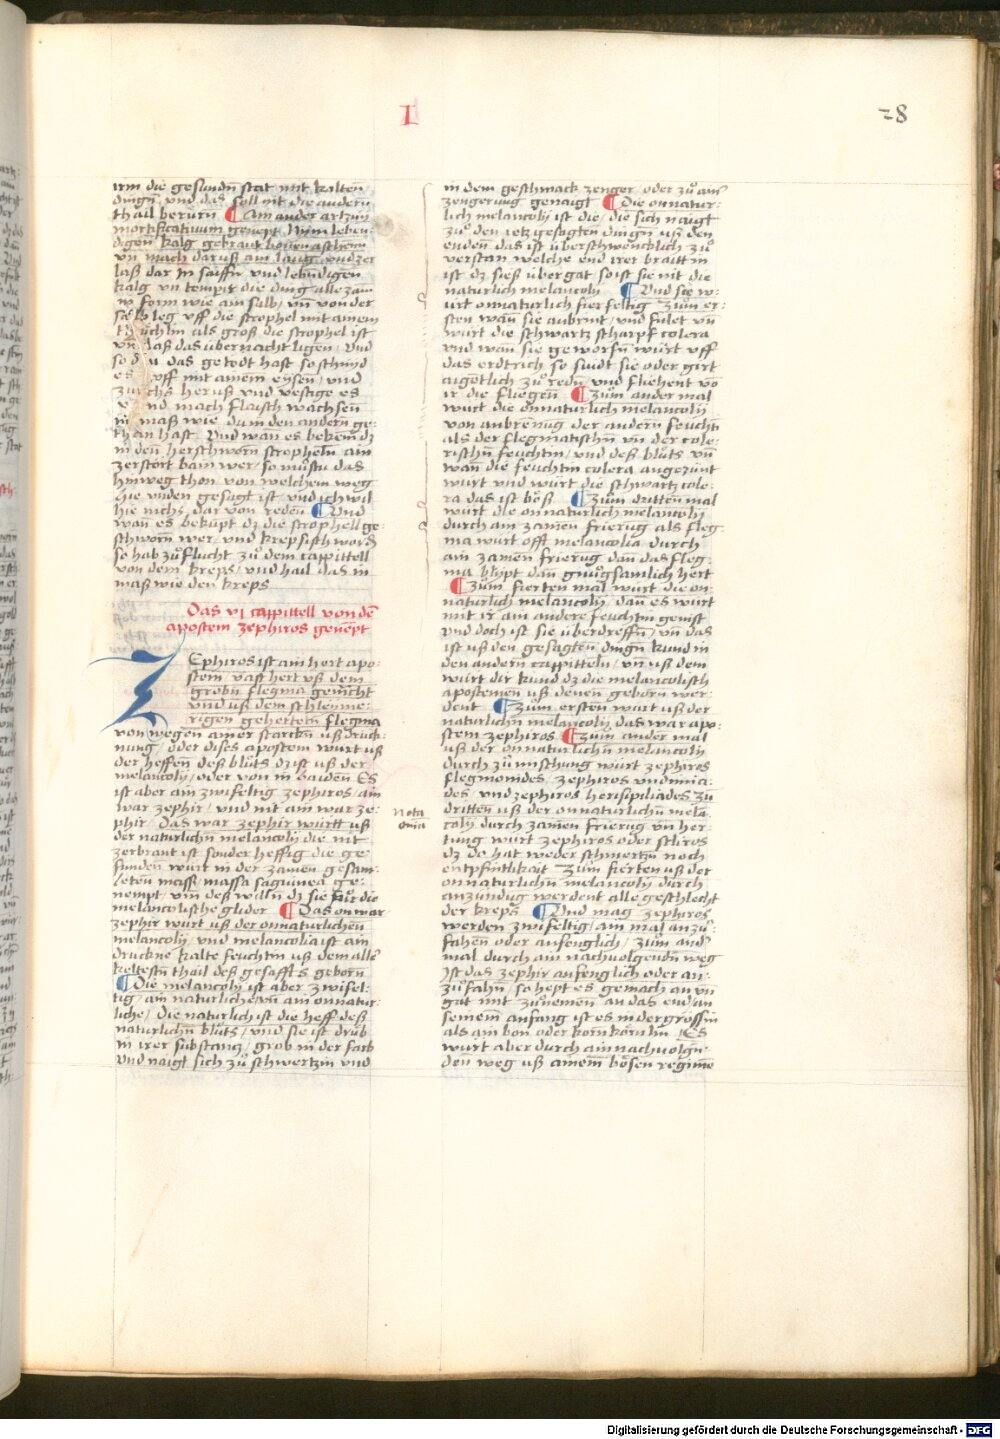 I
28
irm die gesundn̄ stat mit kalten
dingn̄ vnd das soll nit die andern
thail berurn ¶ Ain ander artznn
mortificatiuum genept Nim leben-
digen kalg gebraut bonen aschenn
vn̄ mach daruß ain laug vnd zer
laß dar in saiffn̄ vnd lebndigen
kalg vn̄ tempir die ding alle zam
in form wie ain salb vn̄ von der
salb leg vff die strophel mit ainem
tůchlin als groß die strophel ist
vn̄ laß das übernacht ligen Vnd
so du das getodt hast so schnid
es vff mit ainem eysen vnd
zuichs heruß vnd vestige es
vnd mach flaisch wachsen
in maß wie du in den andern ge-
than hast Vnd wan es bekem dz
in den herschworn strophelñ ain
zerstört bain wer so můstu das
hinweg thon von welchem weg
hie vnden gesagt ist vnd ich wil
hie nichs dar von reden ¶ Vnd
wan es bekūpt dz die strophell ge-
schworn wer vnd krepsisch word
so hab zůflucht zů dem cappittell
von dem kreps vnd hail das in
maß wie den kreps
Das vi cappittell von dē
apostem zephiros genēpt
Zephiros ist ain hert apo-
stem vast hert vß dem
grobn̄ flegma gemcht
vnd vß dem schleyme-
rigen gehertetn̄ flegma
von wegen ainer starckn̄ vßdruck-
nung oder dises apostem wurt vß
der heffen deß blůts dz ist vß der
melancolÿ oder von in baiden Es
ist aber ain zwifeltig zephiros ain
war zephir vnd nit ain war ze-
phir Das war zephir wurtt vß
der naturlichn̄ melancolÿ die nit
zerbrant ist sonder heffig die ge-
funden wurt in der zamen gesam-
leten massa massa sagiunea ge-
nempt vm̄ deß willn̄ dz sie für die
melancolisthe glider ¶ Das onwar
zephir wurt vß der onnaturlichen
melancolÿ vnd melancolia ist ain
druckne kalte feuchtin vß dem aller
keltestn̄ thail deß gesaffts geborn
¶ Die melancolÿ ist aber zwifel-
tig ain naturliche vn̄ ain onnatur-
liche Die naturlich ist die heff deß
naturlichn̄ blůts vnd sie ist drüb
in irer substantz grob in der farb
vnd naigt sich zů schwertzin vnd
Nota
in dem geschmack zenger oder zů ain
zengerung genaigt ¶ Die onnatur-
lich melancolÿ ist die die sich naigt
zů den ietzgesagten dingn̄ vß den
enden das ist überschwencklich zů
verstan welche end irer braitt in
ist dz sieß übergat so ist sie nit die
naturlich melancolÿ ¶ Vnd sie w-
urt onnaturlich fierfeltig zum er-
sten wan̄ sie anbrint vnd fulet vn̄
wurt die schwartz scharpf colera
vnd wan̄ sie geworfn̄ würt vff
das erdtrich so suidt sie oder girt
aigetlich zů redn̄ vnd fliehent vō
ir die fliegen ¶ Zům ander mal
wurt die onnaturlich melancolÿ
von anbrenūg der andern feuchti
als der flegmatischn̄ vn̄ der cole-
rischn̄ feuchtin vnd deß blůts vn̄
wan̄ die feuchtin colera angezünt
wurt vnd würt die schwartz cole-
ra das ist böß ¶ Zům dritten mal
wurt die onnaturlich melancolÿ
durch ain zamen frierūg als fleg-
ma wurt offt melancolia durch
ain zamen frierug dan̄ das fleg-
ma blÿpt dan̄ gnuogsamlich hert
¶ Zům fierten mal wurt die on-
naturlich melancolÿ dan̄ es würt
mit ir ain andere feuchtin gemst
vnd doch ist sie überdreffn̄ vn̄ das
ist vß den gesagten dingn̄ kund in
den andern cappitteln vn̄ vß dem
würt dir kund dz die melancolisch
apostemen vß denen geborn wer-
dent ¶ Zům ersten wart vß der
naturlichn̄ melancolÿ das war apo-
stem zephiros ¶ Zům ander mal
vß der onnaturlichn̄ melancolÿ
durch zůmischung wurt zephiros
flegmoindes zephiros vndimia-
des vnd zephiros herisipiliades Zů
dritten vß der onnaturlichn̄ mela-
colÿ durch zamen frierūg vn̄ her-
tung wurt zephiros oder scliros
dz do hat weder schmertzn̄ noch
entpfintlikait Zum fierten vß der
onnaturlichn̄ melancolÿ durch
anzündūg werdent alle geschlecht
der kreps ¶ Vnd mag zephiros
werden zwifeltig ain mal anzů-
fahen oder anfenglich zům and'
mal durch ain nachvolgendn̄ weg
Ist das zephir anfenglich oder an-
zůfahn̄ so hept es gemach an vn̄
gat mit zůnemen an das end an
seinem anfang ist es in der grossin
als ain bon oder korn kōrnlin Es
wurt aber durch ain nachuolgn-
den̄ weg vß ainem bösen regime
Digitalisierung gefördert durch die Deutsche Forschungsgemeinschaft - DFG